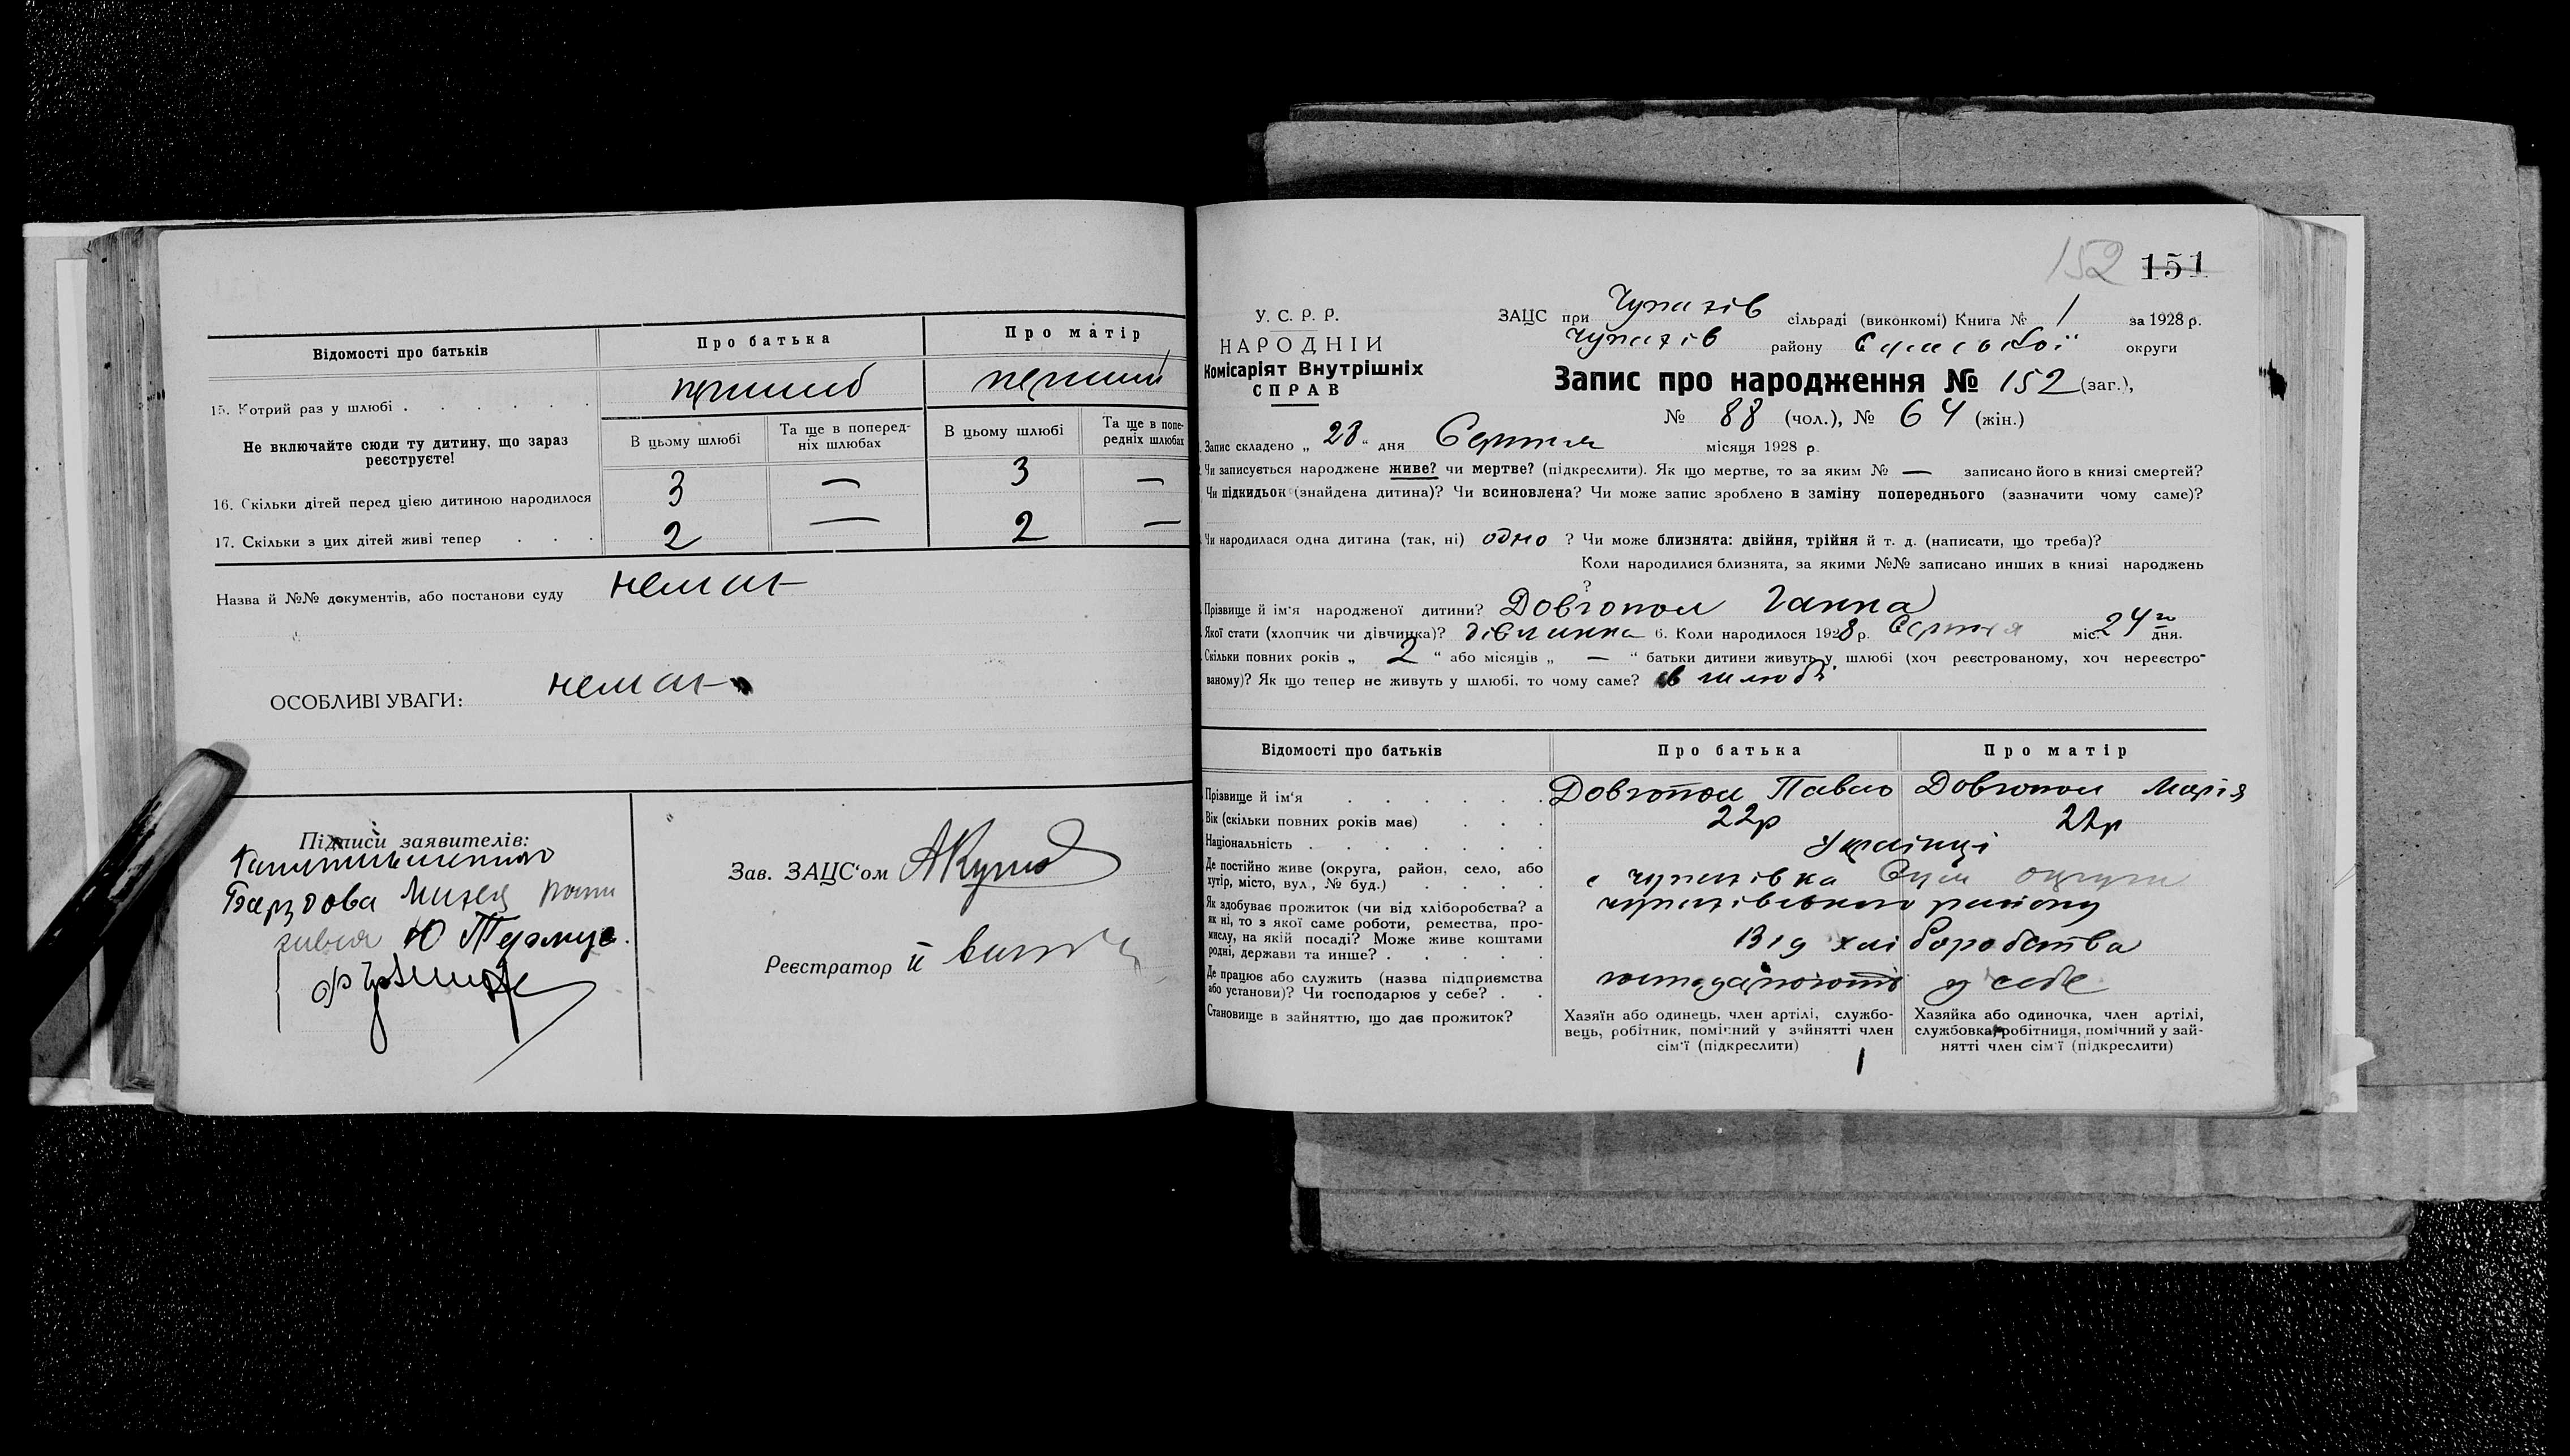 Відомості про батьків
Про батька
Про матір
15. Котрий раз у шлюбі
перший
перший
Не включайте сюди ту дитину, що зараз
реєструєте!
В цьому шлюбі
Та ще в поперед-
ніх шлюбах
В цьому шлюбі
Та ще в попе-
редніх шлюбах
16. Скільки дітей перед цією дитиною народилося
3
—
3
—
17. Скільки з цих дітей живі тепер
2
—
2
—
Назва й №№ документів, або постанови суду
немає
ОСОБЛИВІ УВАГИ:
немає
Підписи заявителів:
Зав. ЗАЦС'ом
Реєстратор
152 151
У. С. Р. Р.
НАРОДНІЙ
Комісаріят Внутрішніх
СПРАВ
ЗАЦС при Чупахів сільраді (виконкомі) Книга № 1 за 1928 р.
Чупахів району Сумської округи
Запис про народження № 152 (заг.),
№ 88 (чол.), № 64 (жін.)
Запис складено „ 28 " дня Серпня місяця 1928 р.
Чи записується народжене живе? чи мертве? (підкреслити). Як що мертве, то за яким № — записано його в книзі смертей?
Чи підкидьок (знайдена дитина)? Чи всиновлена? Чи може запис зроблено в заміну попереднього (зазначити чому саме)?
Чи народилася одна дитина (так, ні) одно ? Чи може близнята: двійня, трійня й т. д. (написати, що треба)?
Коли народилися близнята, за якими №№ записано инших в книзі народжень
?
Прізвище й ім'я народженої дитини? Довгопол Ганна
Якої стати (хлопчик чи дівчинка)? дівчинка 6. Коли народилося 1928 р. Серпня міс. 24го дня.
Скільки повних років „ 2 " або місяців „ — " батьки дитини живуть у шлюбі (хоч реєстрованому, хоч нереєстро-
ваному)? Як що тепер не живуть у шлюбі, то чому саме? в шлюбі
Відомості про батьків
Про батька
Про матір
Прізвище й ім'я
Довгопол Павло
Довгопол Марія
Вік (скільки повних років має)
22р
22р
Національність
Українці
Де постійно живе (округа, район, село, або
хутір, місто, вул., № буд.)
с Чупахівка Сум округи
Чупахівського району
Як здобуває прожиток (чи від хліборобства? а
як ні, то з якої саме роботи, ремества, про-
мислу, на якій посаді? Може живе коштами
родні, держави та инше?
Від хліборобства
Де працює або служить (назва підприємства
або установи)? Чи господарює у себе?
господарюють у себе
Становище в зайняттю, що дає прожиток?
Хазяїн або одинець, член артілі, службо-
вець, робітник, помічний у зайнятті член
сім'ї (підкреслити)
Хазяйка або одиночка, член артілі,
службовка, робітниця, помічний у зай-
нятті член сім'ї (підкреслити)